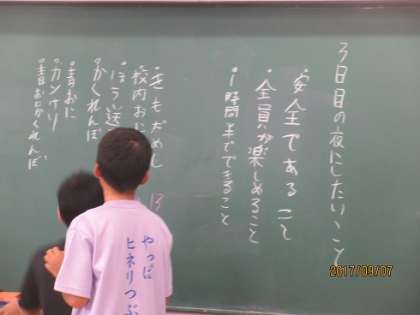 3日目の夜にしたいこと
・安全であること
・全員が楽しめること
・1時間半でできること
・きもだめし 13
校内おに
・ほう送
・かくれんぼ
・青おに
・カンケリ
・青おにかくれんぼ
やっぱ
ヒネリつぶ
2017/09/07